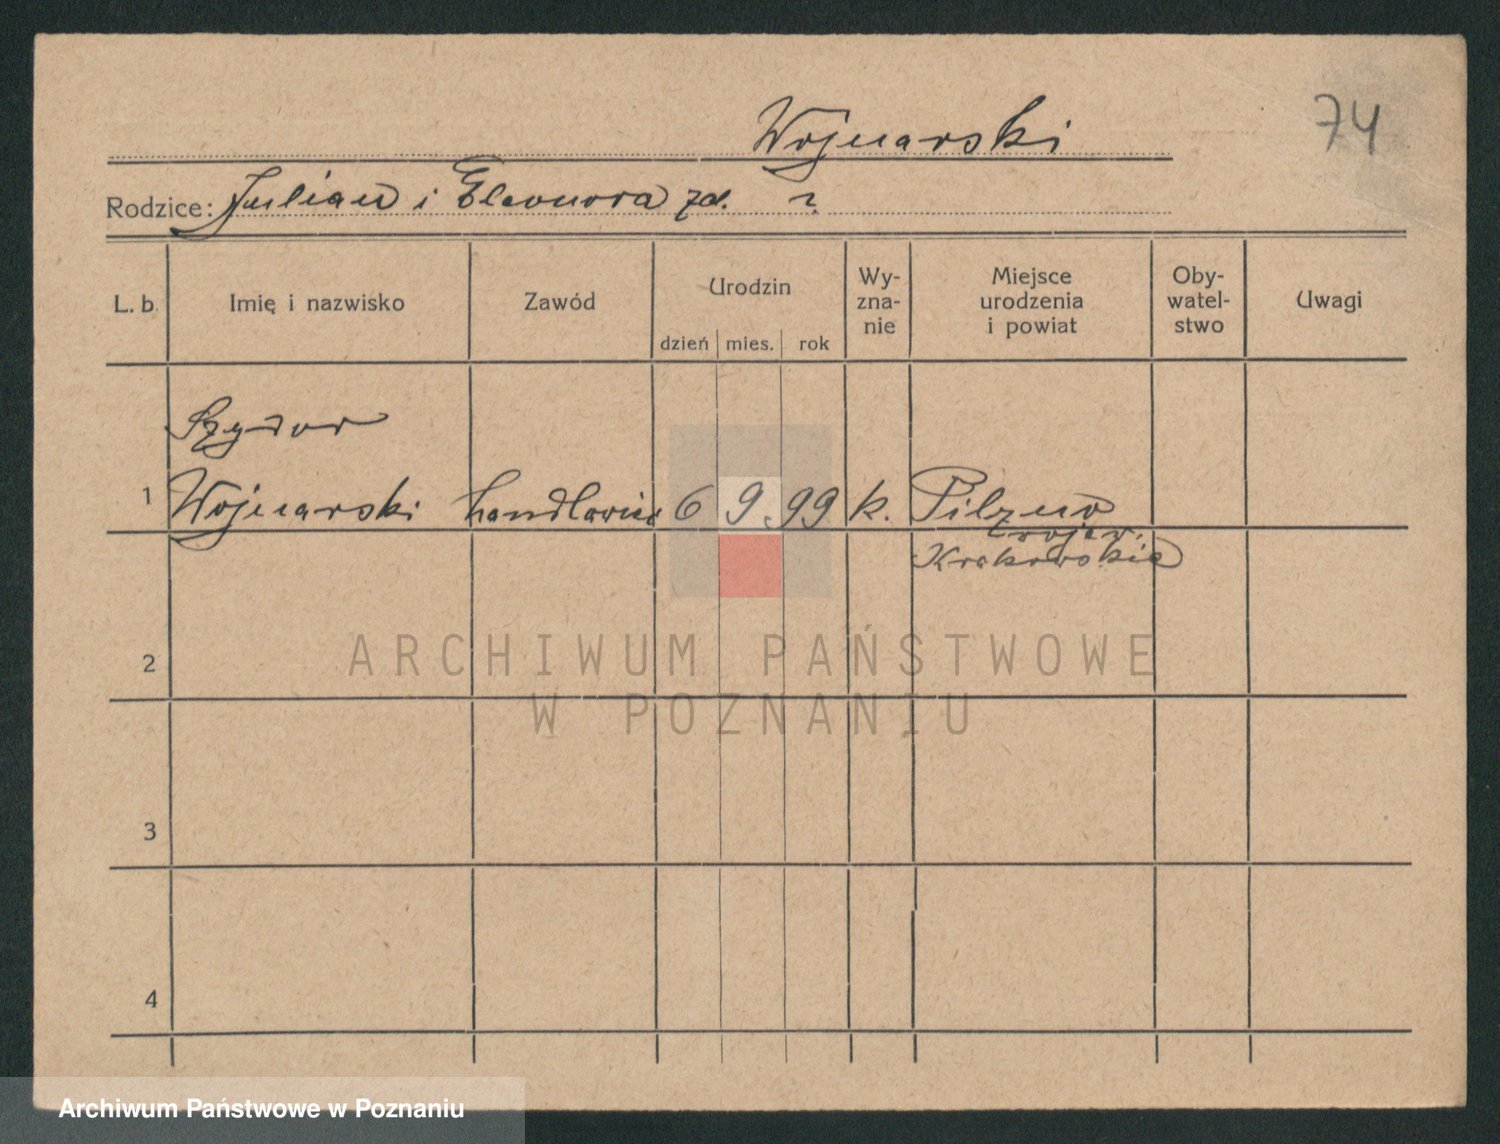 Wojnarski
74
Rodzice: Julian i Eleonora zd. ?
L. b.
Imię i nazwisko
Zawód
Urodzin
dzień
mies.
rok
Wy-
zna-
nie
Miejsce
urodzenia
i powiat
Oby-
watel-
stwo
Uwagi
Wojnarski
1
6
9
99
k.
Pilzno
wojew.
Krakowskie
2
3
4
ARCHIWUM PAŃSTWOWE
W POZNANIU
Archiwum Państwowe w Poznaniu